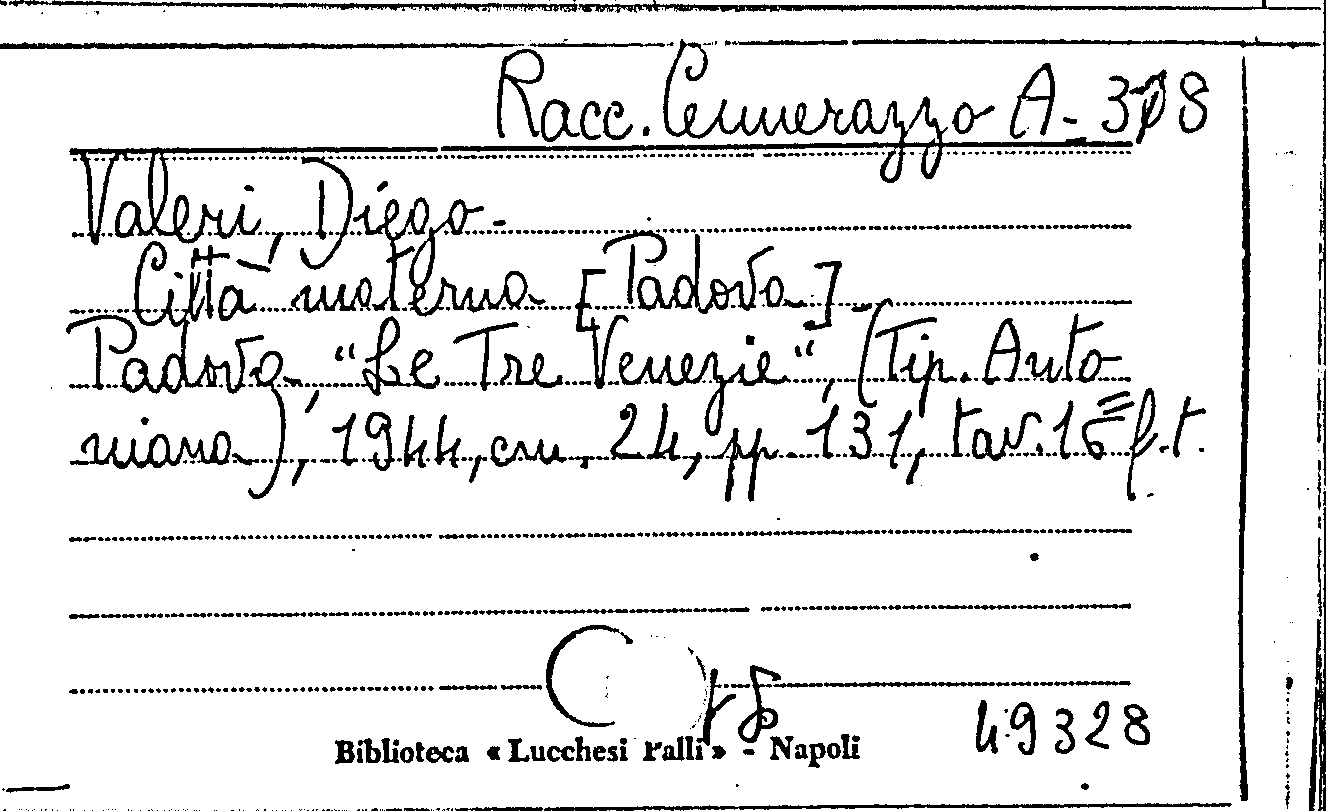 Racc. Cennerazzo A-318
Valeri, Diego-
Città materna [Padova]-
Padova, "Le Tre Venezie", (Tip. Anto
niana), 1944, cm. 24, pp. 131, tav. 16 f.t.
Biblioteca « Lucchesi Palli » - Napoli
49328